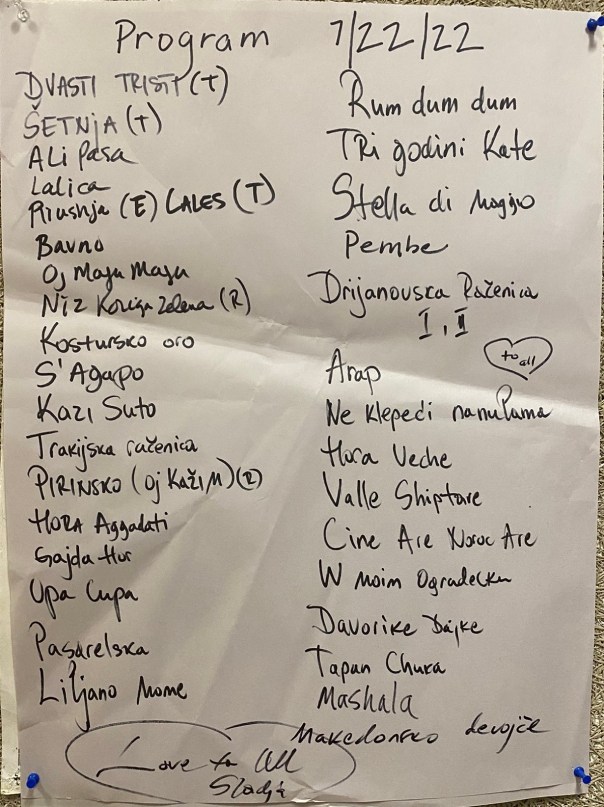 Program 7/22/22
DVASTI TRISTI (T)
ŠETNJA (T)
ALi Pasa
Lalica
Rrushja (E) LALES (T)
Bavno
Oj Maju Maju
Niz Zelena (R)
Kostursko oro
S'Agapo
Kazi Suto
Trakijska račenica
PIRINSKO (oj Kaži M) (R)
HORA Aggadati
Gajda Hor
Upa Cupa
Pasarelska
Liljano Mome
Rum dum dum
TRi godini Kate
Stella di Maggio
Pembe
Drijanovska Račenica
I, II
to all
Arap
Ne klepeći nanulama
Hora Veche
Valle Shiptare
Cine Are Noroc Are
W moim Ogradecku
Davorike Dajke
Tapan Chuka
Mashala
Makedonsko devojče
Love to All
Sladja